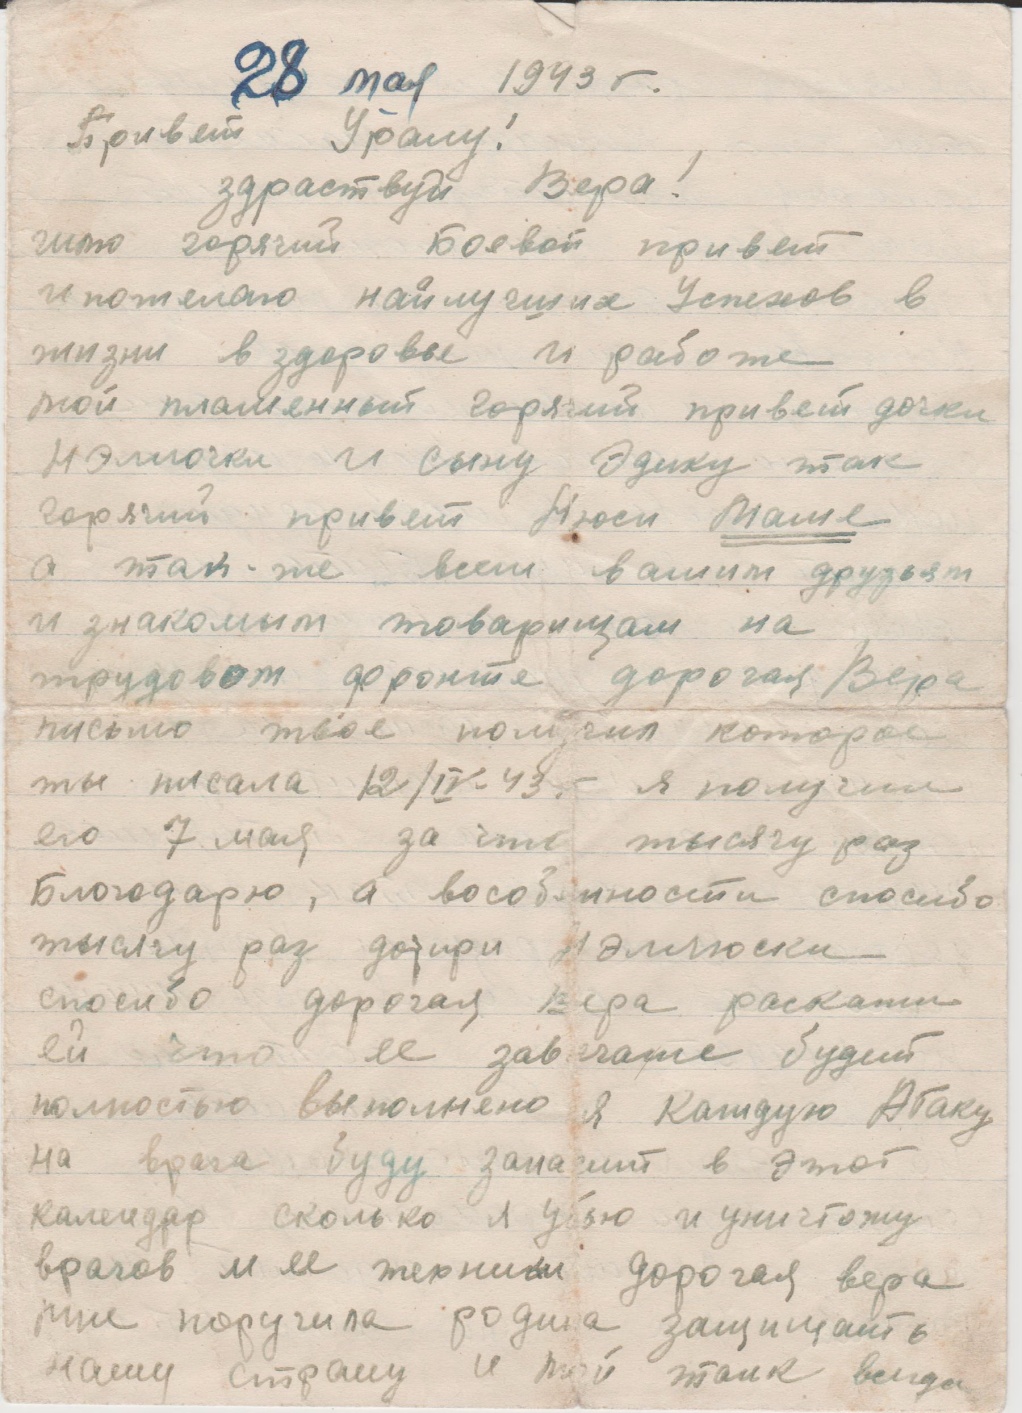 28 мая 1943 г.
Привет Уралу!
здраствуй Вера!
шлю горячий Боевой привет
и пожелаю найлучших Успехов в
жизни в здоровье и работе
мой пламенный горячий привет дочки
Нэллички и сыну Эдику так
горячий привет Нюси Маше
а так-же всем вашим друзьям
и знакомым товарищам на
трудовом фронте дорогая Вера
письмо твое получил которое
ты писала 12/IV-43 г я получил
его 7 мая за что тысячу раз
Благодарю, а вособенности спосибо
тысячу раз дочири Нэлюски
спосибо дорогая Вера раскажи
ей что ее будит
полностью выполнено я каждую Атаку
на врага буду в этот
календар сколько я убью и уничтожу
врагов и ее дорогая вера
мне поручила родина защищать
нашу страну и мой танк всигда